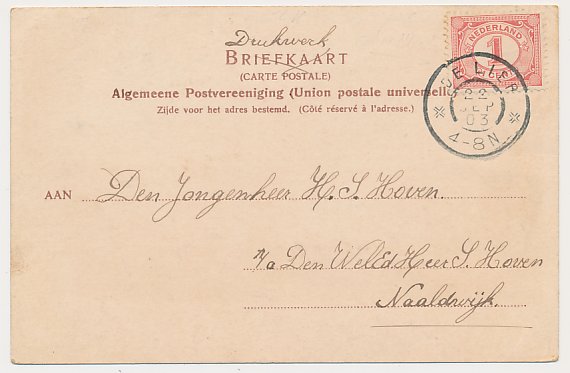 Drukwerk
BRIEFKAART
(CARTE POSTALE)
Algemeene Postvereeniging (Union postale universelle)
Zijde voor het adres bestemd. (Côté réservé à l'adresse.)
NEDERLAND
1
DE LIER
22
SEP
03
4-8N
AAN Den Jongenheer H. S. Hoven.
p/a Den WelEd Heer S. Hoven
Naaldwijk.